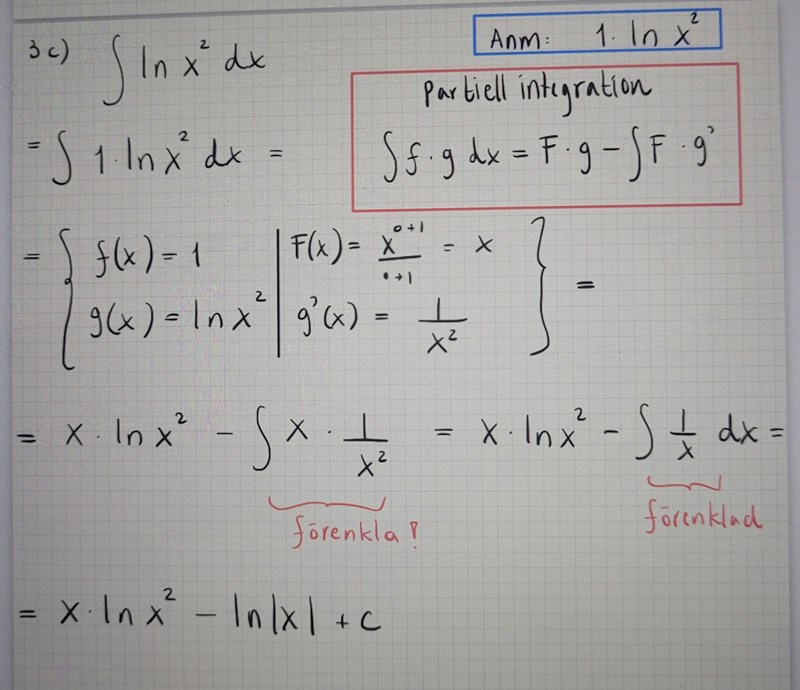 3c) ∫ ln x² dx
Anm: 1 · ln x²
Partiell integration
∫ f · g dx = F · g − ∫ F · g'
= ∫ 1 · ln x² dx =
= { f(x) = 1 | F(x) = x^(0+1) / (0+1) = x
g(x) = ln x² | g'(x) = 1/x² } =
= x · ln x² − ∫ x · 1/x² = x · ln x² − ∫ 1/x dx =
förenkla! förenklad
= x · ln x² − ln|x| + c